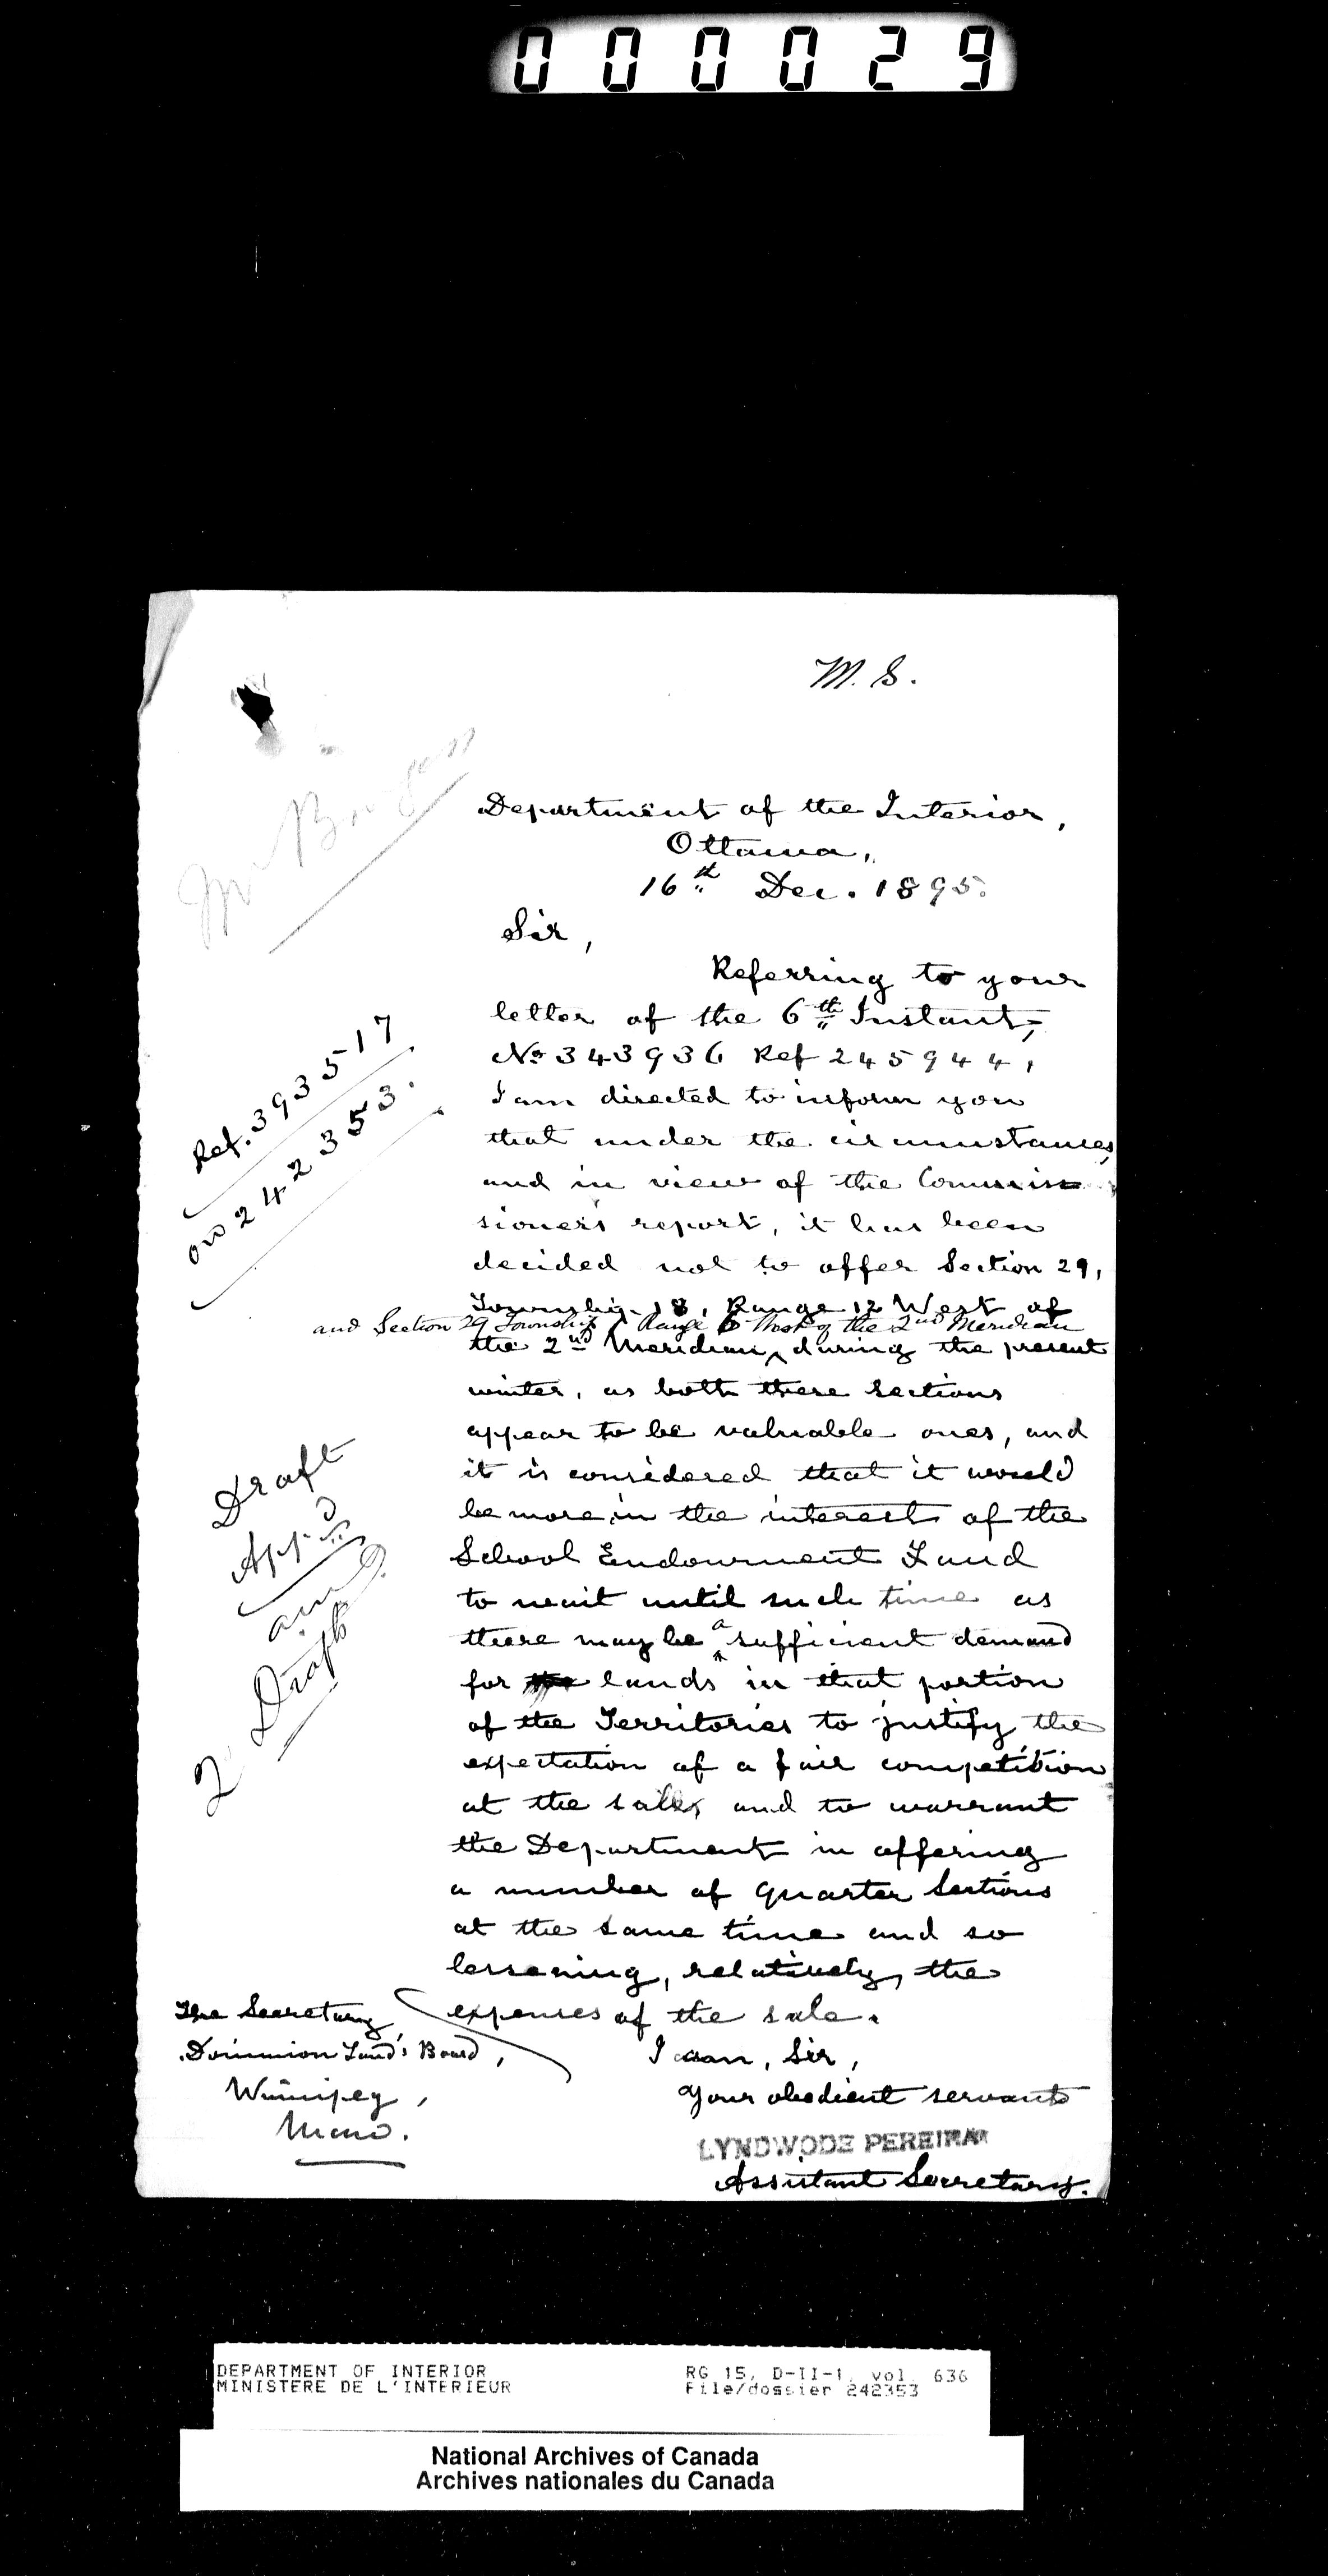 000029
M. S.
Mr Burgess
Department of the Interior,
Ottawa,
16th Dec. 1895.
Sir,
Referring to your
letter of the 6th Instant,
No 343936 Ref 245944,
I am directed to inform you
that under the circumstances,
and in view of the Commis
sioner's report, it has been
decided not to offer Section 29,
Township 18, Range 12 West of
and Section 29 Township Range 6 West of the 2nd Meridian
the 2nd Meridian, during the present
winter, as both these sections
appear to be valuable ones, and
it is considered that it would
be more in the interests of the
School Endowment Fund
to wait until such time as
there may be a sufficient demand
for the lands in that portion
of the Territories to justify the
expectation of a fair competition
at the sale, and to warrant
the Department in offering
a number of quarter sections
at the same time and so
lessening, relatively, the
expenses of the sale.
I am, Sir,
Your obedient servant
LYNDWODE PEREIRA
Assistant Secretary.
Ref. 393517
on 242353.
Draft
App.d
Draft
The Secretary,
Dominion Lands Board,
Winnipeg,
Man.
DEPARTMENT OF INTERIOR
MINISTERE DE L'INTERIEUR
RG 15, D-II-1, vol. 636
File/dossier 242353
National Archives of Canada
Archives nationales du Canada